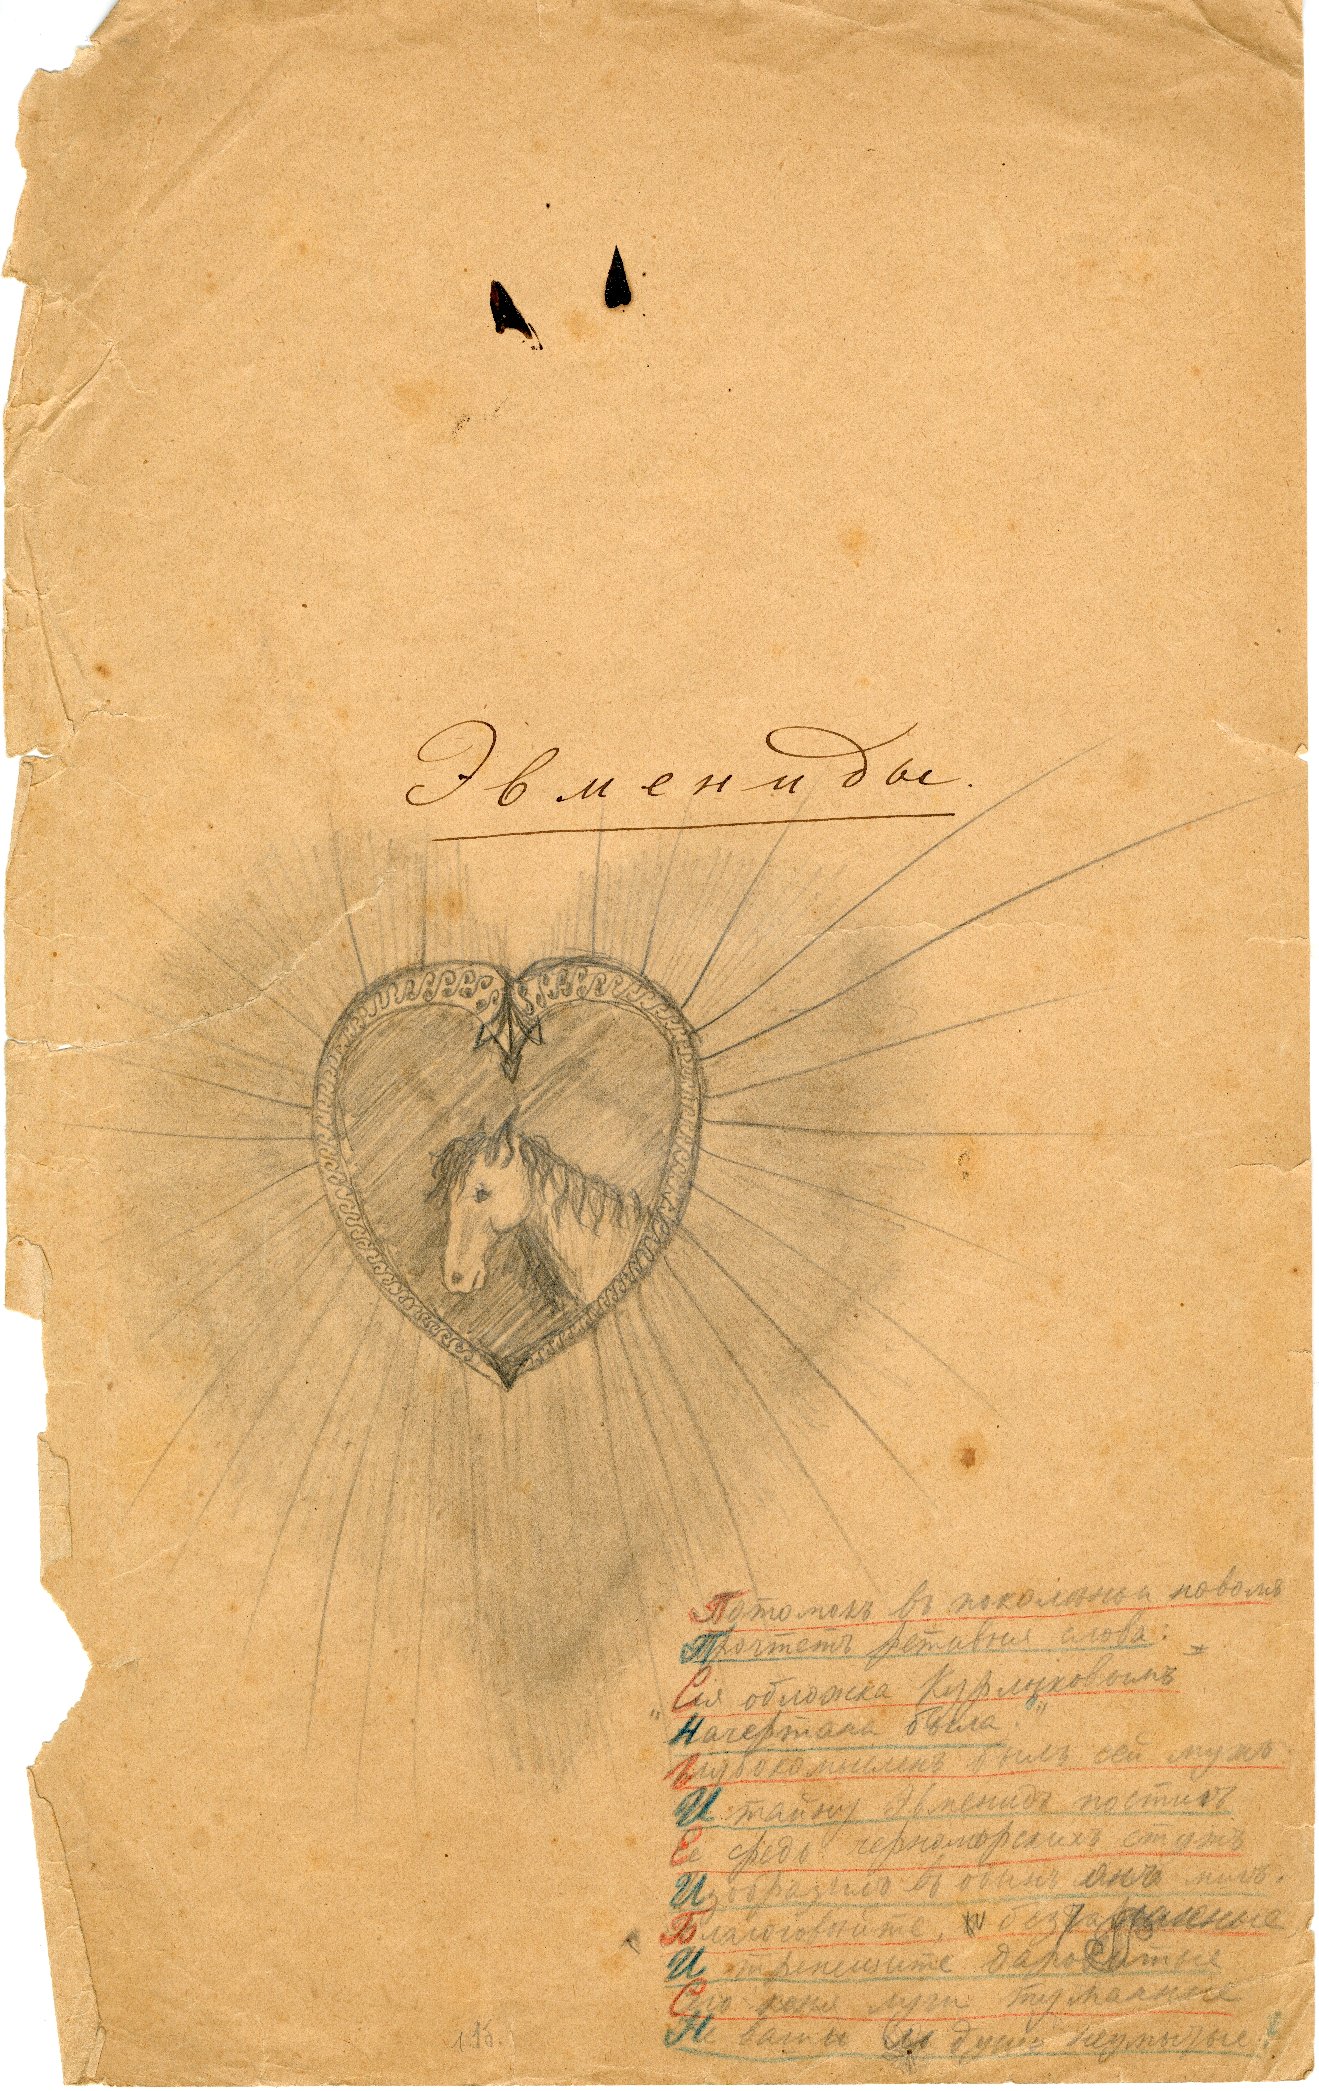 Эвмениды.
Потомокъ въ поколѣньи новомъ
Прочтетъ ретивыя слова:
"Сія обложка Курлюковымъ
Начертана была."
Глубокомысленъ былъ сей мужъ
И тайну Эвменидъ постигъ
Ее средь черноморскихъ стужъ
Изобразилъ въ одинъ онъ мигъ.
Благоговѣйте,
И трепещите даровитые
Сего коня лучи туманные
Не ваши души немытые!